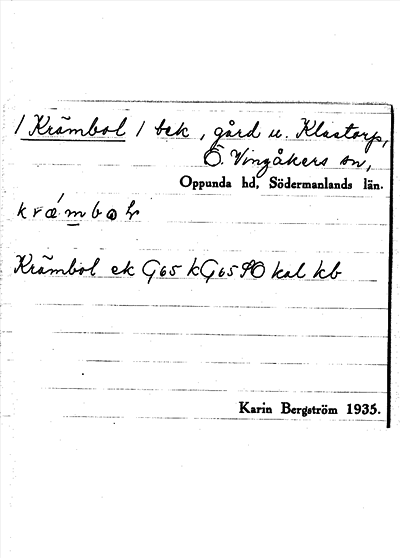 / Krämbol / bek, gård u. Klastorp,
Ö. Vingåkers sn,
Oppunda hd, Södermanlands län.
Krämbol ek G65 kG65 PO kal kb
Karin Bergström 1935.